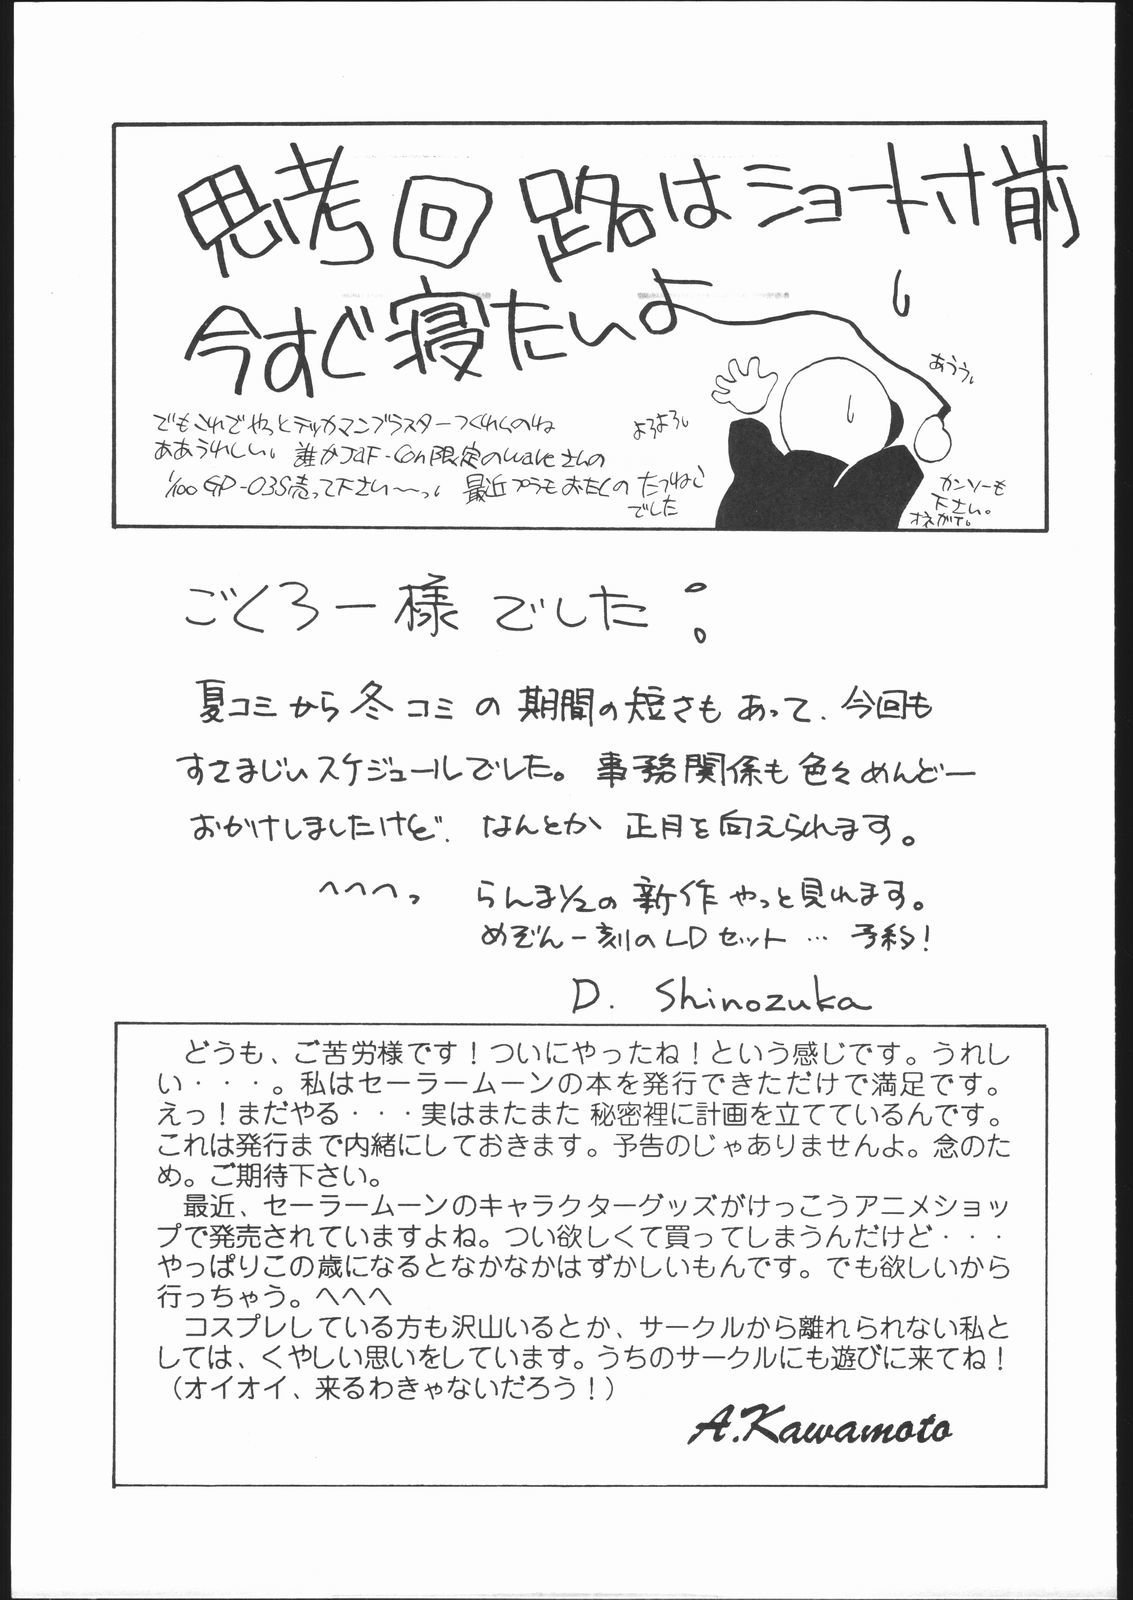 思考回路はショート寸前
今すぐ寝たいよ
でもこれでやっとテッカマンブラスターつくれるのね
ああうれしい。誰かJaF-Con限定のwaveさんの
1/100 GP-03S売って下さい〜っ。最近プラモおたくの たつねこ
でした
よろよろ。
あうう。
カンソーも
下さい。
オネガイ。
ごくろー様でした。
夏コミから冬コミの期間の短さもあって、今回も
すさまじいスケジュールでした。事務関係も色々めんどー
おかけしましたけど、なんとか正月を向えられます。
へへへっ らんま1/2の新作やっと見れます。
めぞん一刻のLDセット…予約!
D. Shinozuka
どうも、ご苦労様です!ついにやったね!という感じです。うれし
い・・・。私はセーラームーンの本を発行できただけで満足です。
えっ!まだやる・・・実はまたまた 秘密裡に計画を立てているんです。
これは発行まで内緒にしておきます。予告のじゃありませんよ。念のた
め。ご期待下さい。
最近、セーラームーンのキャラクターグッズがけっこうアニメショッ
プで発売されていますよね。つい欲しくて買ってしまうんだけど・・・
やっぱりこの歳になるとなかなかはずかしいもんです。でも欲しいから
行っちゃう。へへへ
コスプレしている方も沢山いるとか、サークルから離れられない私と
しては、くやしい思いをしています。うちのサークルにも遊びに来てね!
（オイオイ、来るわきゃないだろう!）
A.Kawamoto